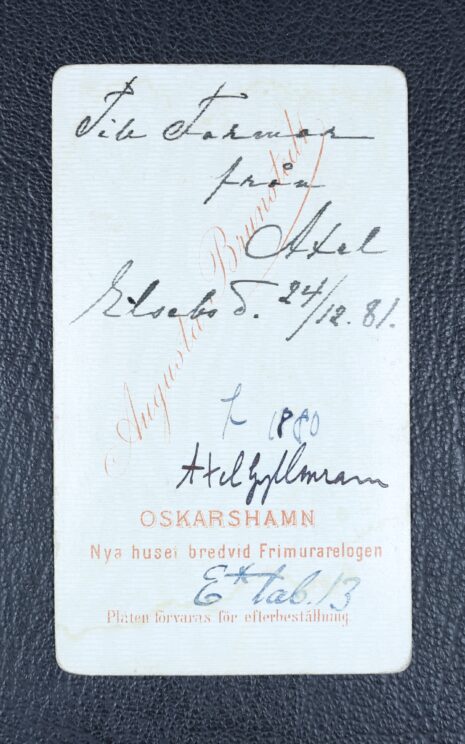 Till Farmor
från
Axel
d. 24/12. 81.
Augusta Brunstedt
1880
Axel Gyllenram
OSKARSHAMN
Nya huset bredvid Frimurarelogen
E* tab. 13
Plåten förvaras för efterbeställning.